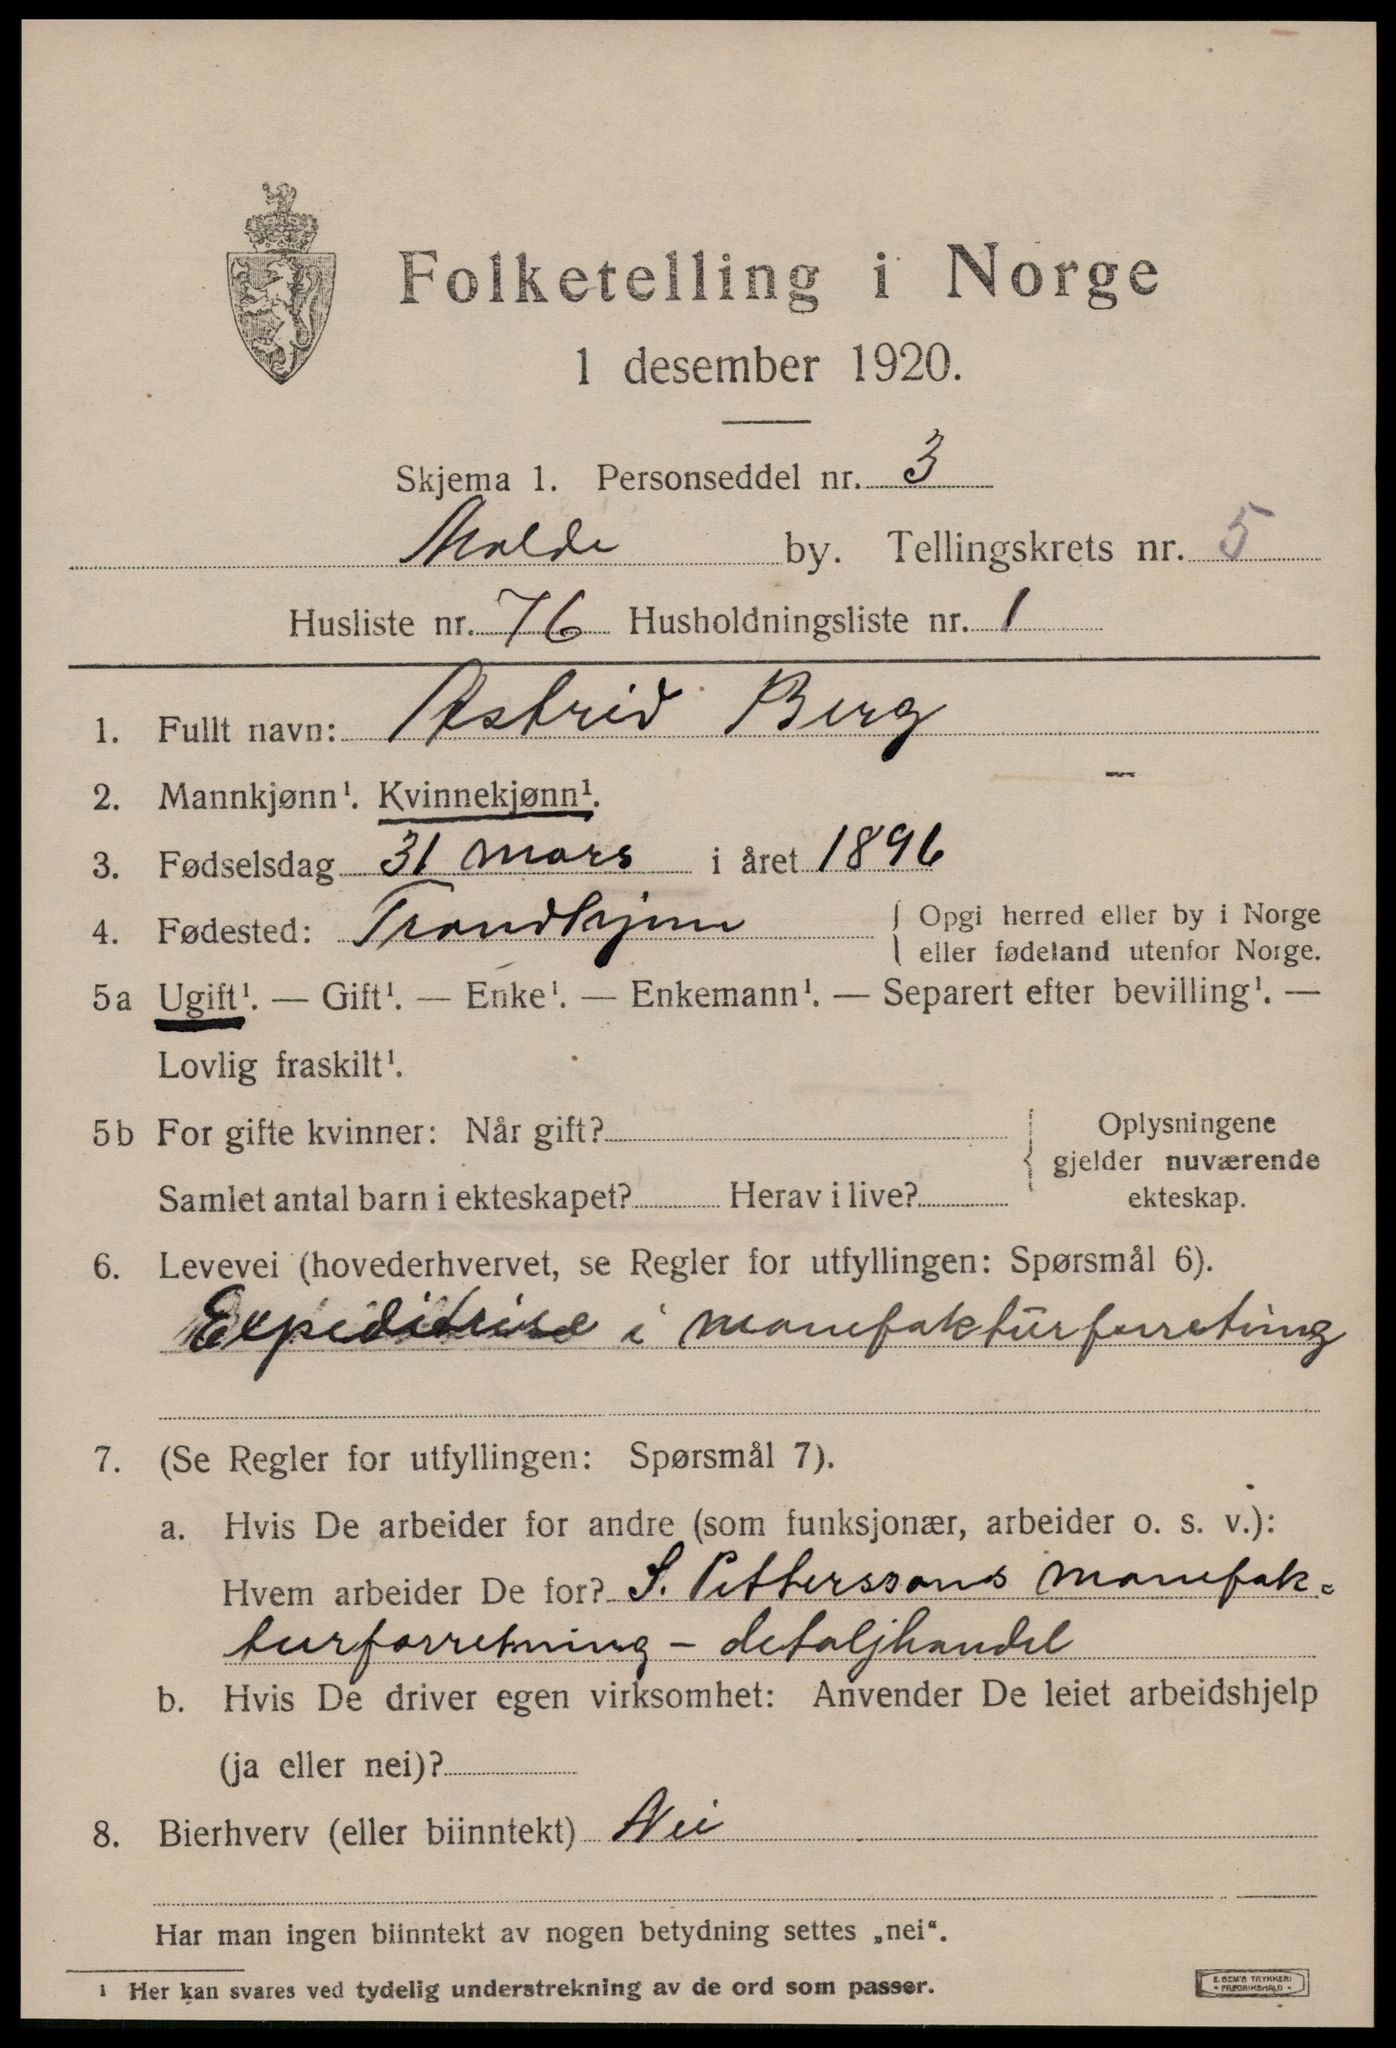 Folketelling i Norge
1 desember 1920.
Skjema 1. Personseddel nr. 3
Molde by. Tellingskrets nr. 5
Husliste nr. 76 Husholdningsliste nr. 1
1. Fullt navn: Astrid Berg
2. Mannkjønn¹. Kvinnekjønn¹.
3. Fødselsdag 31 mars i året 1896
4. Fødested: Trondhjem { Opgi herred eller by i Norge
eller fødeland utenfor Norge.
5a Ugift¹. — Gift¹. — Enke¹. — Enkemann¹. — Separert efter bevilling¹. —
Lovlig fraskilt¹.
5b For gifte kvinner: Når gift?
Samlet antal barn i ekteskapet? Herav i live?
Oplysningene
gjelder nuværende
ekteskap.
6. Levevei (hovederhvervet, se Regler for utfyllingen: Spørsmål 6).
Expeditrise i manufakturforretning
7. (Se Regler for utfyllingen: Spørsmål 7).
a. Hvis De arbeider for andre (som funksjonær, arbeider o. s. v.):
Hvem arbeider De for? S. Petterssons manufak-
turforretning - detaljhandel
b. Hvis De driver egen virksomhet: Anvender De leiet arbeidshjelp
(ja eller nei)?
8. Bierhverv (eller biinntekt) Nei
Har man ingen biinntekt av nogen betydning settes „nei“.
¹ Her kan svares ved tydelig understrekning av de ord som passer.
E. SEM'S TRYKKERI
• FREDRIKSHALD •